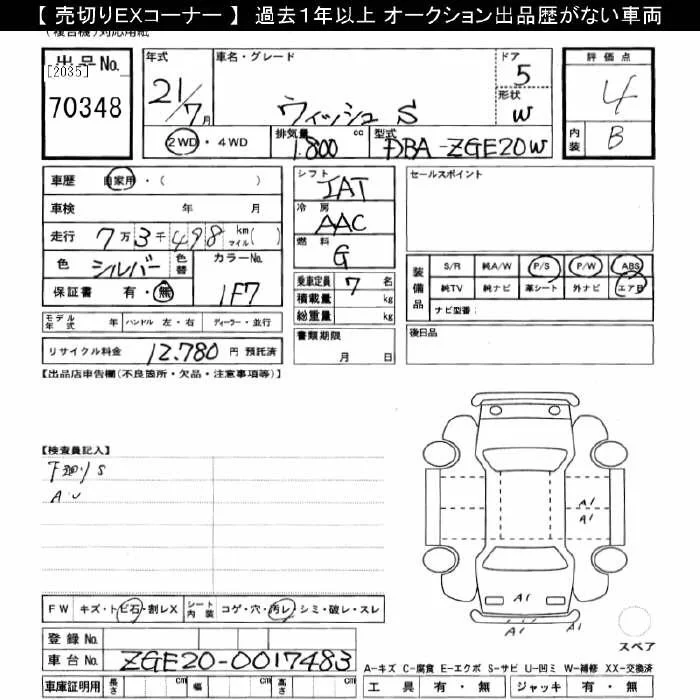 【 売切りEXコーナー 】 過去１年以上 オークション出品歴がない車両
(複合機)対応用紙
出品No.
[2035]
70348
年式
21/7月
車名・グレード
ウィッシュ S
ドア
5
形状
W
評価点
4
内装
B
2WD・4WD
排気量 1.800 cc
型式 DBA-ZGE20W
車歴 自家用・( )
車検 年 月
走行 7万3千498 km マイル( )
色 シルバー 色替 カラーNo. 1F7
保証書 有・無
シフト IAT
冷房 AAC
燃料 G
乗車定員 7 名
積載量 kg
総重量 kg
書類期限
月 日
セールスポイント
装備品
S/R 純A/W P/S P/W ABS
純TV 純ナビ 革シート 外ナビ エアB
ナビ型番:
後日品
モデル年式 年 ハンドル 左・右 ディーラー・並行
リサイクル料金 12.780 円 預託済
【出品店申告欄(不良箇所・欠品・注意事項等)】
【検査員記入】
下廻り S
A U
A1
A1
A1
A1
A1
A1
FW キズ・トビ石・割レX シート内装 コゲ・穴・汚レ・シミ・破レ・スレ
登録No.
車台No. ZGE20-0017483
車庫証明用 長さ cm 幅 cm 高さ cm
スペア
A-キズ C-腐食 E-エクボ S-サビ U-凹ミ W-補修 XX-交換済
工具 有・無 ジャッキ 有・無